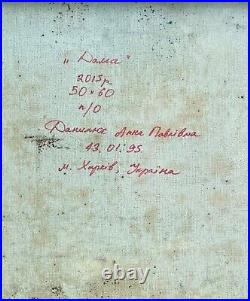 „Дама"
2015р.
50×60
п/о
Данилюк Анна Павлівна
13.01.95
м. Харків, Україна
ebay